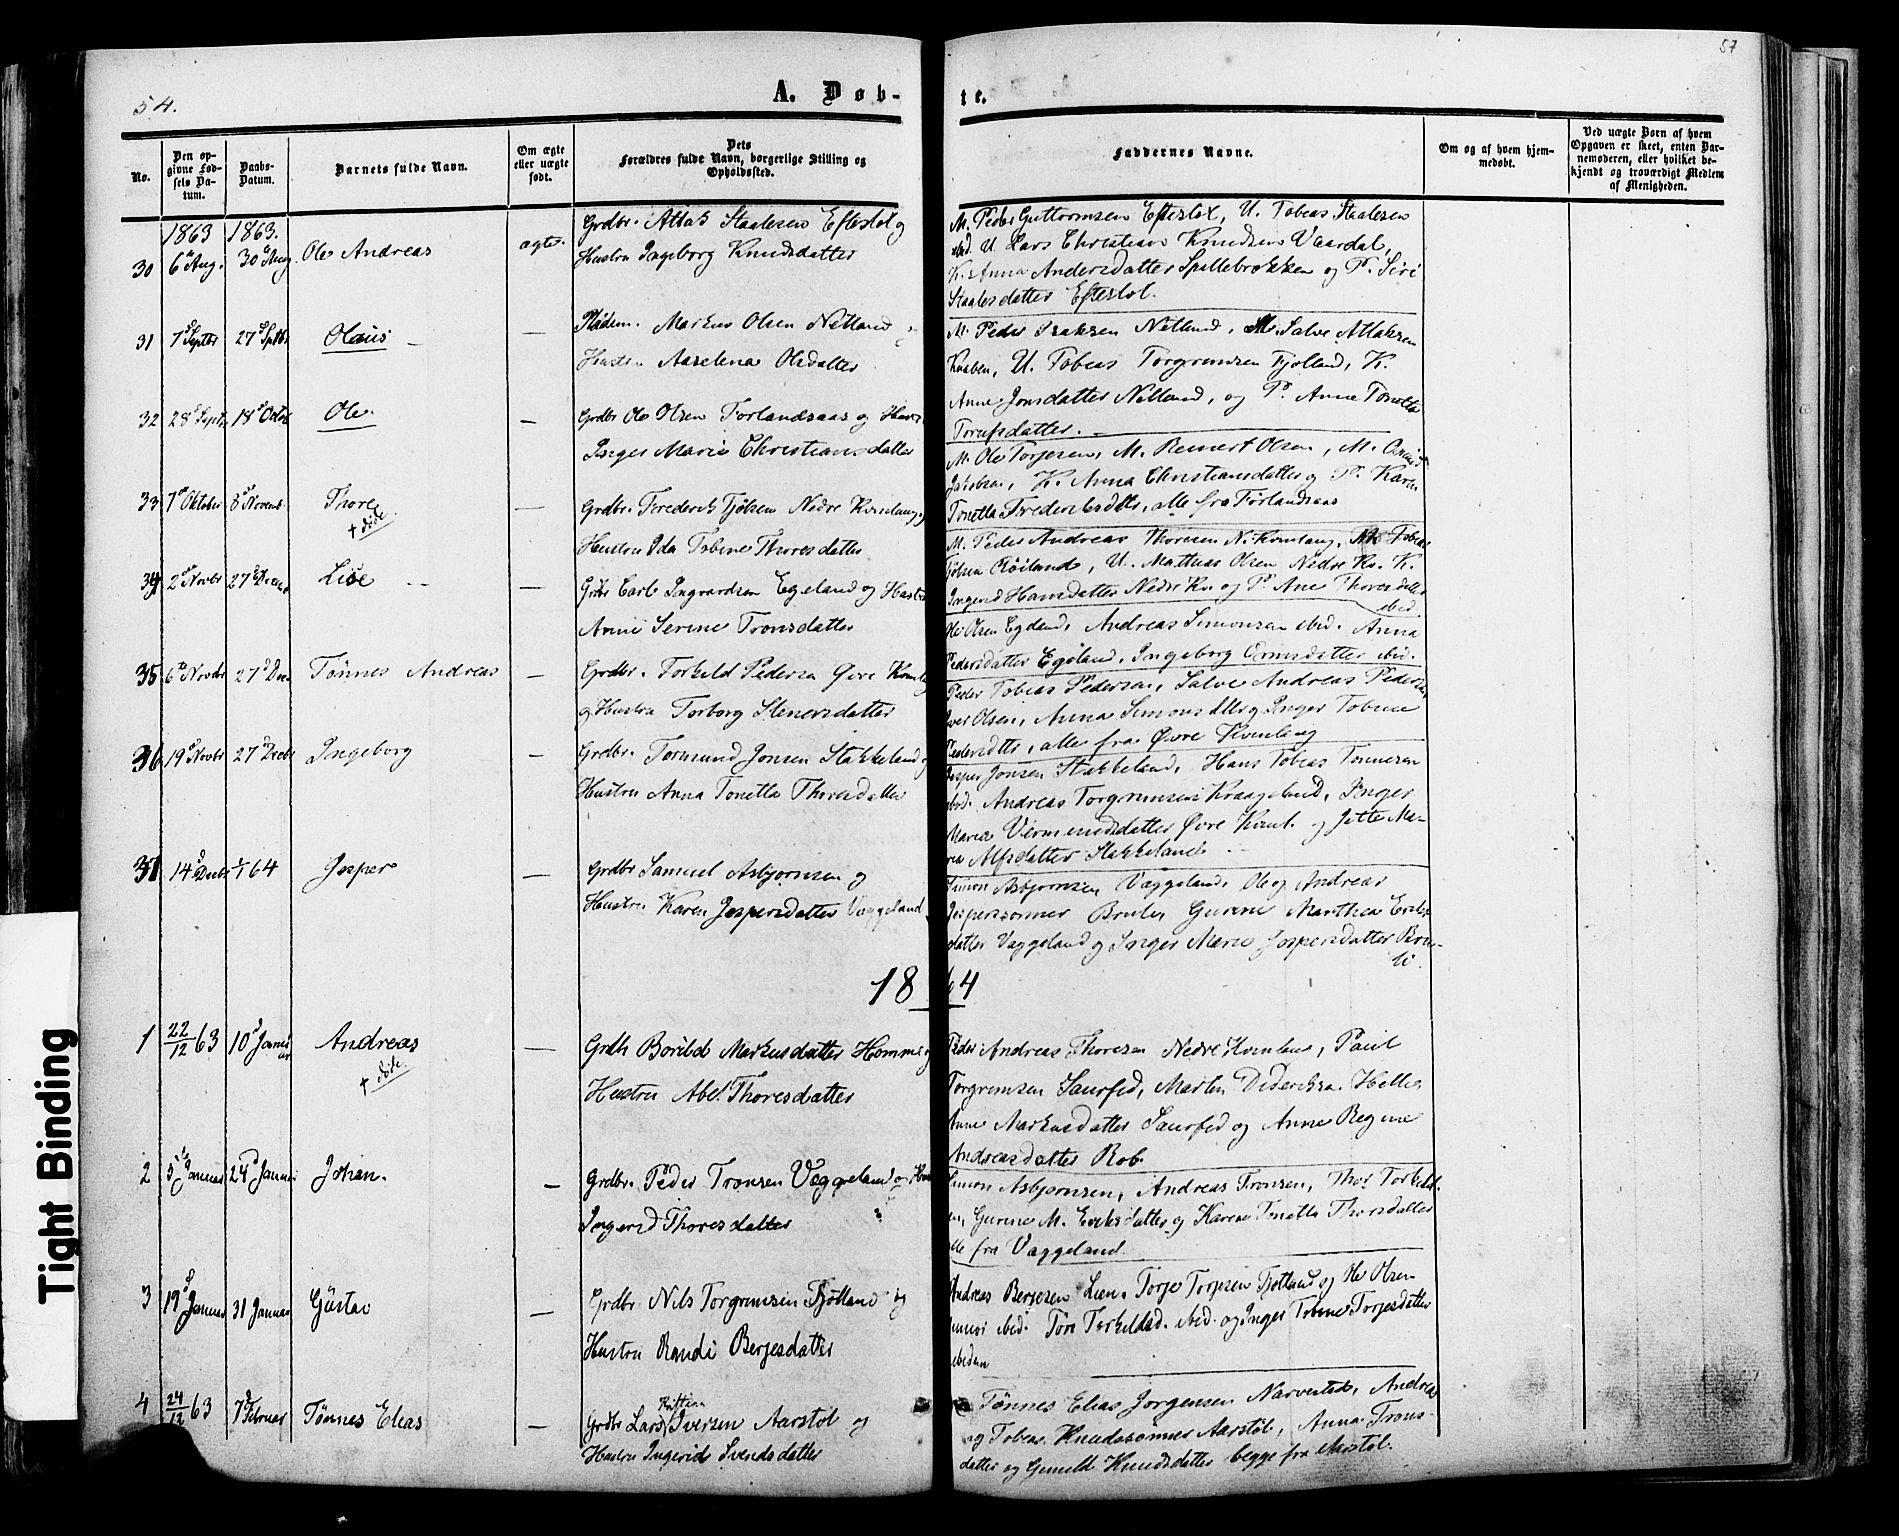 54.
57
A. Døb-
te.
No.
Den op-
givne Fød-
sels Da-
tum.
Daabs-
Datum.
Barnets fulde Navn.
Om ægte
eller uægte
født.
Dets
Forældres fulde Navn, borgerlige Stilling og
Opholdssted.
Faddernes Navne.
Om og af hvem hjem-
medøbt.
Ved uægte Børn af hvem
Opgaven er skeet, enten Bar-
nemoderen, eller hvilket be-
kjendt og troværdigt Medlem
af Menigheden.
1863 1863.
30 6 Aug. 30 Aug. Ole Andreas ægte.
Grdbr. Atlak Staalesen Eftestøl og
Hustru Ingeborg Knudsdatter
M. Peder Guttormsen Eftestøl, U. Tobias Staalesen
ibd. U. Lars Christian Knudsen Vaardal,
K. Anna Andersdatter Spillebrokken og P. Siri
Staalesdatter Eftestøl.
31 7 Septbr 27 Septbr Olaus —
Pladsm. Markus Olsen Netland og
Hustru Aaselena Olsdatter
M. Peder Isaksen Netland, M. Salve Atlaksen
Knaben, U. Tobias Torgrimsen Fjotland, K.
Anne Jonsdatter Netland, og P. Anne Tonetta
32 28 Septbr 18 Octbr Ole —
Grdbr Ole Olsen Forlandsaas og Hustru
Inger Marie Christiansdatter
M. Ole Torjesen, M. Reinert Olsen, M.
K. Anna Christiansdatter og P. Karen
Tonetta Frederiksdtr, alle fra Førlandsaas
33 7 Oktober 8 Novemb. Thore —
† døde
Grdbr. Frederik Tjølsen Nedre Kvinlaug og
Hustru Ida Tobine Thoresdatter
M. Peder Andreas Thoresen N. Kvinlaug, Tobias
Tjølsen Røiland, U. Mathias Olsen Nedre Kv. K.
Ingerid Hansdatter Nedre Kv. og P. Ane Thoresdatter
ibid
34 2 Novbr 27 Decbr Lise —
Grdbr Carl Ingvardsen Egeland og Hustru
Anne Serine Tronsdatter
Ole Olsen Egeland, Andreas Simonsen ibid. Anna
Pedersdatter Egeland, Ingeborg Omundsdatter ibid.
35 6 Novbr 27 Dec. Tønnes Andreas —
Grdbr. Torkild Pedersen Øvre Kvinl.
og Hustru Torborg Stenersdatter
Peder Tobias Pedersen, Salve Andreas Pedersen
Iver Olsen, Anna Simonsdtr og Inger Tobine
Pedersdtr, alle fra Øvre Kvinlaug
36 19 Novbr 27 Decbr Ingeborg —
Grdbr. Tormund Jonsen Stakkeland og
Hustru Anna Tonetta Thoresdatter
Jesper Jonsen Stakkeland, Hans Tobias Tønnesen
ibid. Andreas Torgrimsen Kraageland, Inger
Maria Vermundsdatter Øvre Kvinl. og Jette Ma-
ria Alfsdatter Stakkeland
37 14 Decbr 1/1 64 Jesper —
Grdbr Samuel Asbjørnsen og
Hustru Karen Jespersdatter Væggeland
Simon Asbjørnsen Væggeland, Ole og Andreas
Jespersønner Bruli, Gurine Marthea Eriks-
datter Væggeland og Inger Marie Jespersdatter Bru-
li.
1864
1 22/12 63 10 Januar Andreas —
† døde.
Grdbr Borild Markusdatter Homme og
Hustru Abel Thoresdatter
Peder Andreas Thoresen Nedre Kvinlaug, Paul
Torgrimsen Saurfed, Martin Dideriksen Helle
Anne Markusdatter Saurfed og Anne Regine
Andreasdatter Rob.
2 5 Januar 24 Januar Johan. —
Grdbr. Peder Tronsen Væggeland og Hustru
Ingerid Thoresdatter
Simon Asbjørnsen, Andreas Tronsen, Thor Torkild-
sen, Gurine M. Eriksdatter og Karen Tonetta Thorsdatter
alle fra Væggeland.
3 19 Januar 31 Januar Güstav —
Grdbr. Nils Torgrimsen Fjotland og
Hustru Randi Bergesdatter
Andreas Bergesen Lien, Torje Torjesen Fjotland og Ole Olsen
ibid. Tore Torkildsd. ibid. og Inger Tobine Torjesdatter
ibidem
4 24/12 63 7 Februar Tønnes Elias —
Kristian
Grdbr Lars Iversen Aarstøl og
Hustru Ingerid Svendsdatter
Tønnes Elias Jørgensen Narvestad, Andreas
og Tobias Knudssønner Aarstøl, Anna Trons-
datter og Gunild Knudsdatter begge fra Aarstøl.
Tight Binding